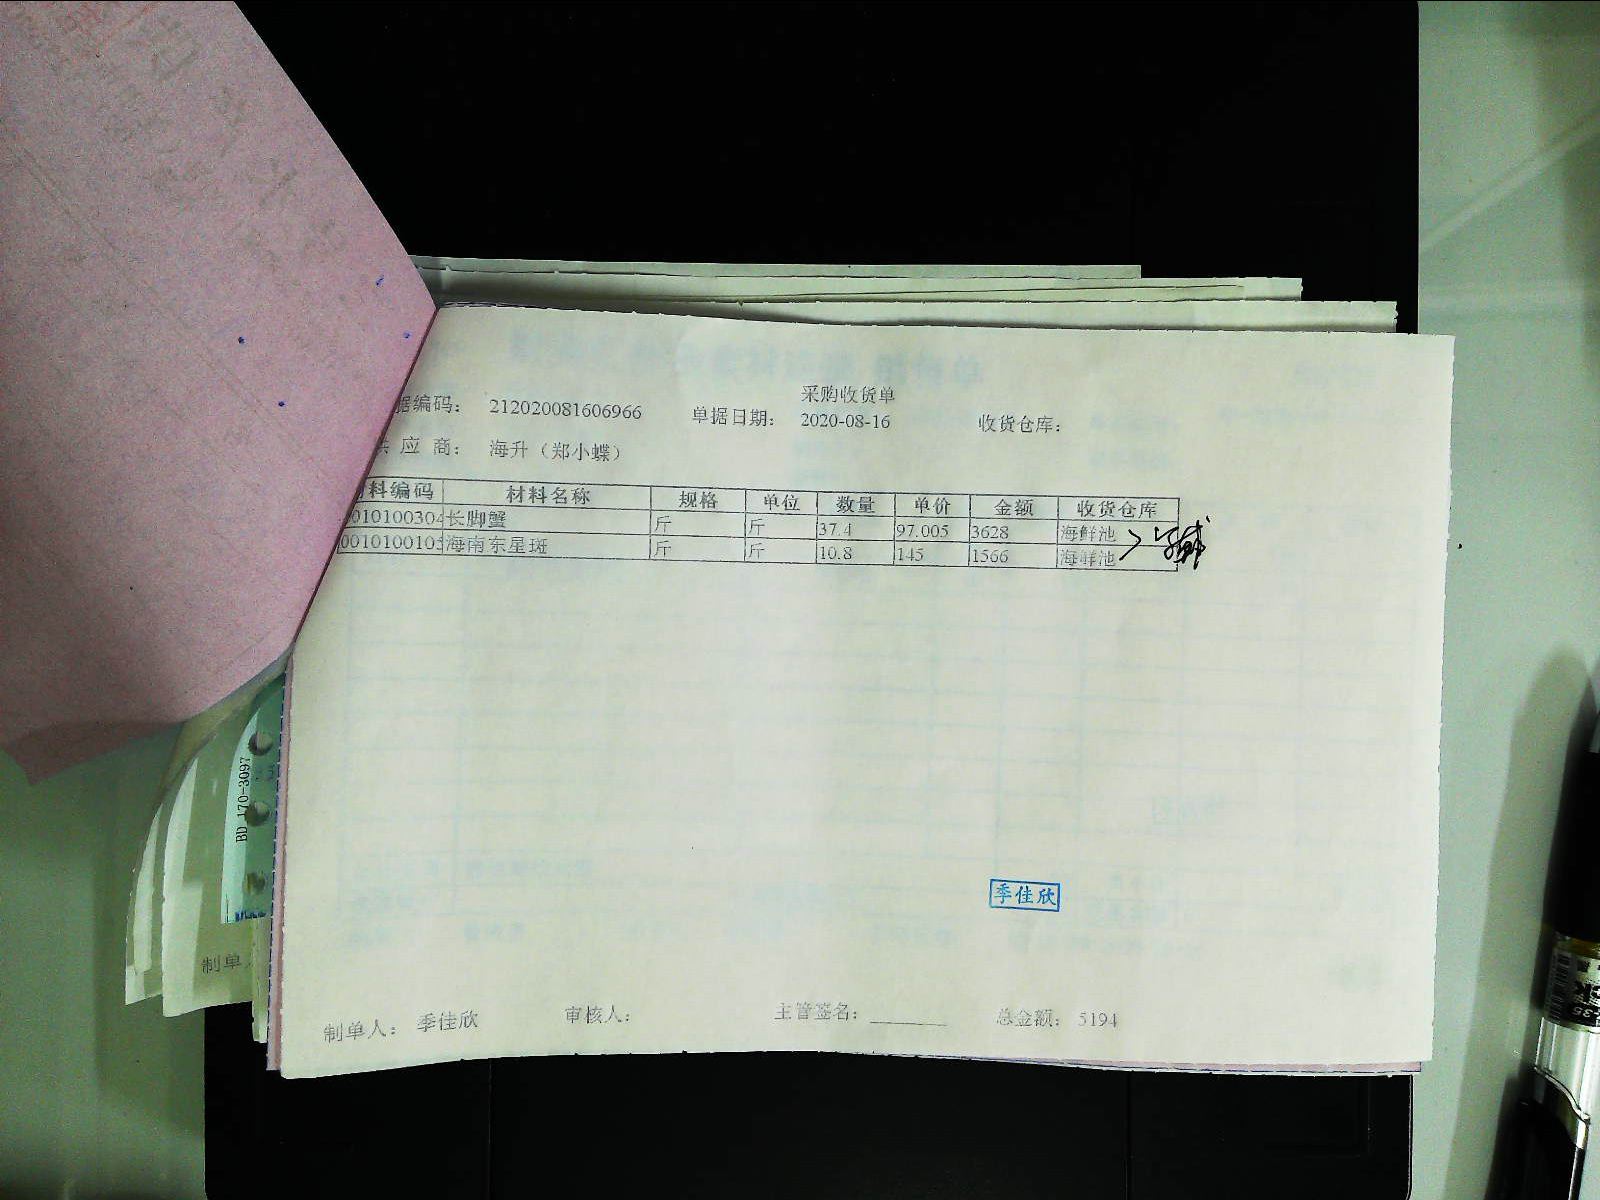 采购收货单
据编码： 212020081606966 单据日期： 2020-08-16 收货仓库：
供 应 商： 海升（郑小蝶）
材料编码 材料名称 规格 单位 数量 单价 金额 收货仓库
0010100304 长脚蟹 斤 斤 37.4 97.005 3628 海鲜池
0010100105 海南东星斑 斤 斤 10.8 145 1566 海鲜池
BD 170-3097
季佳欣
制单
制单人： 季佳欣 审核人： 主管签名：________ 总金额： 5194